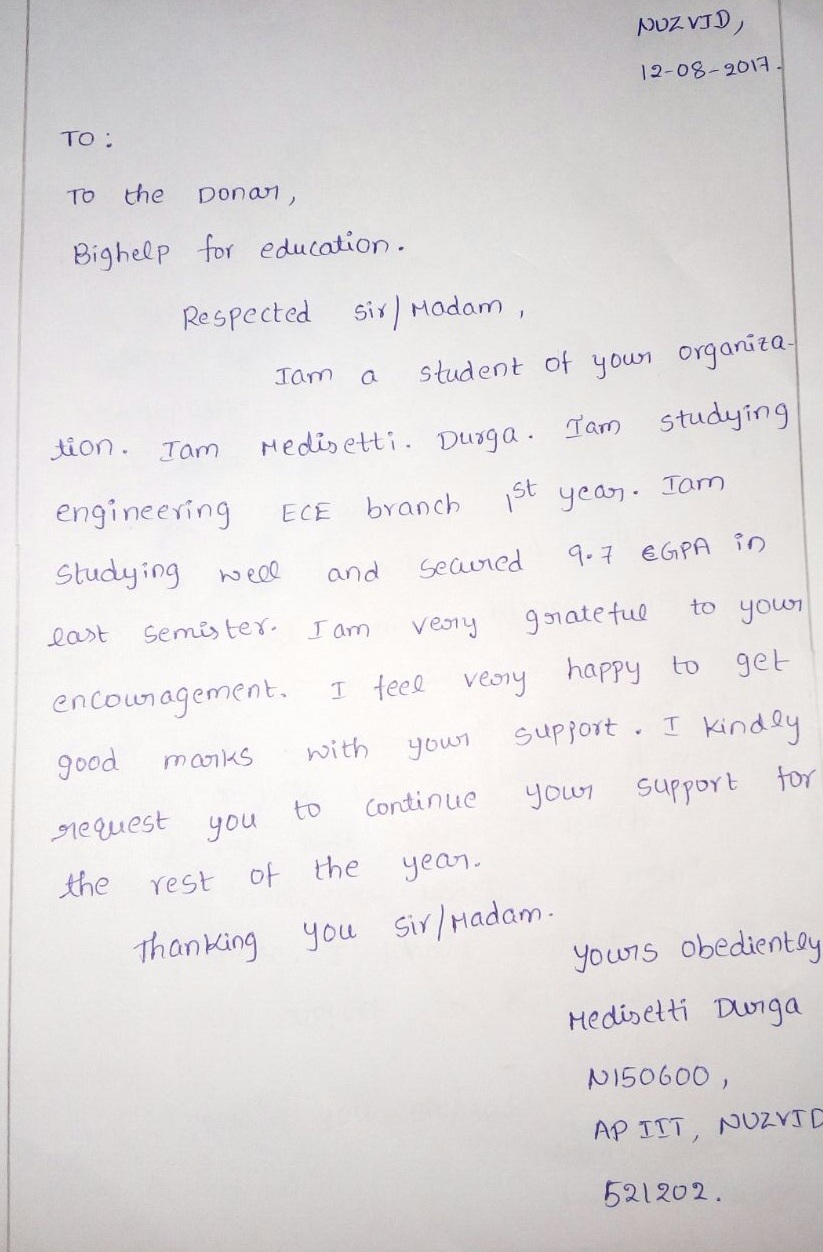 NUZVID,
12-08-2017.
TO :
To the Donar,
Bighelp for education.
Respected Sir/Madam,
Iam a student of your organiza-
tion. Iam Medisetti. Durga. Iam studying
engineering ECE branch 1st year. Iam
Studying well and secured 9.7 EGPA in
last semister. I am very grateful to your
encouragement. I feel very happy to get
good marks with your support. I kindly
request you to continue your support for
the rest of the year.
Thanking you Sir/Madam.
yours obediently
Medisetti Durga
N150600,
AP IIT, NUZVID
521202.